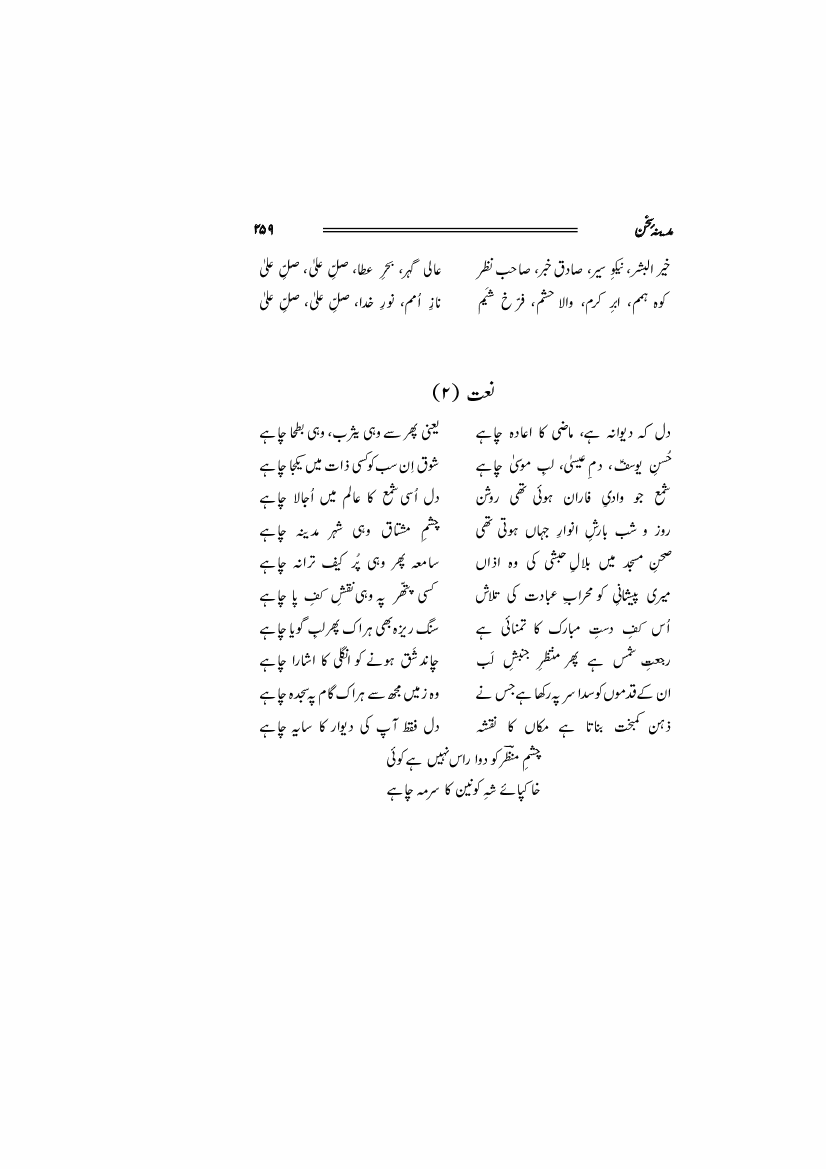 مدینۂ سخن ۲۵۹
خیر البشر، نیکوِ سیر، صادق خبر، صاحب نظر عالی گہر، بحرِ عطا، صلِّ علیٰ، صلِّ علیٰ
کوہ ہمم، ابرِ کرم، والا حشم، فرّخ شیَم نازِ اُمم، نورِ خدا، صلِّ علیٰ، صلِّ علیٰ
نعت (۲)
دل کہ دیوانہ ہے، ماضی کا اعادہ چاہے یعنی پھر سے وہی یثرب، وہی بطحا چاہے
حُسنِ یوسفؑ، دمِ عیسیٰ، لبِ موسیٰ چاہے شوق اِن سب کو کسی ذات میں یکجا چاہے
شمع جو وادیِ فاران ہوئی تھی روشن دل اُسی شمع کا عالم میں اُجالا چاہے
روز و شب بارشِ انوارِ جہاں ہوتی تھی چشمِ مشتاق وہی شہر مدینہ چاہے
صحنِ مسجد میں بلالِ حبشی کی وہ اذاں سامعہ پھر وہی پُر کیف ترانہ چاہے
میری پیشانیِ کو محرابِ عبادت کی تلاش کسی پتھّر پہ وہی نقشِ کفِ پا چاہے
اُس کفِ دستِ مبارک کا تمنائی ہے سنگ ریزہ بھی ہر اک پھر لبِ گویا چاہے
رجعتِ شمس ہے پھر منتظرِ جنبشِ لَب چاند شَق ہونے کو انگلی کا اشارا چاہے
ان کے قدموں کو سدا سر پہ رکھا ہے جس نے وہ زمیں مجھ سے ہر اک گام پہ سجدہ چاہے
ذہن کمبخت بناتا ہے مکاں کا نقشہ دل فقط آپ کی دیوار کا سایہ چاہے
چشمِ منظؔر کو دوا راس نہیں ہے کوئی
خاکپائے شہِ کونین کا سرمہ چاہے